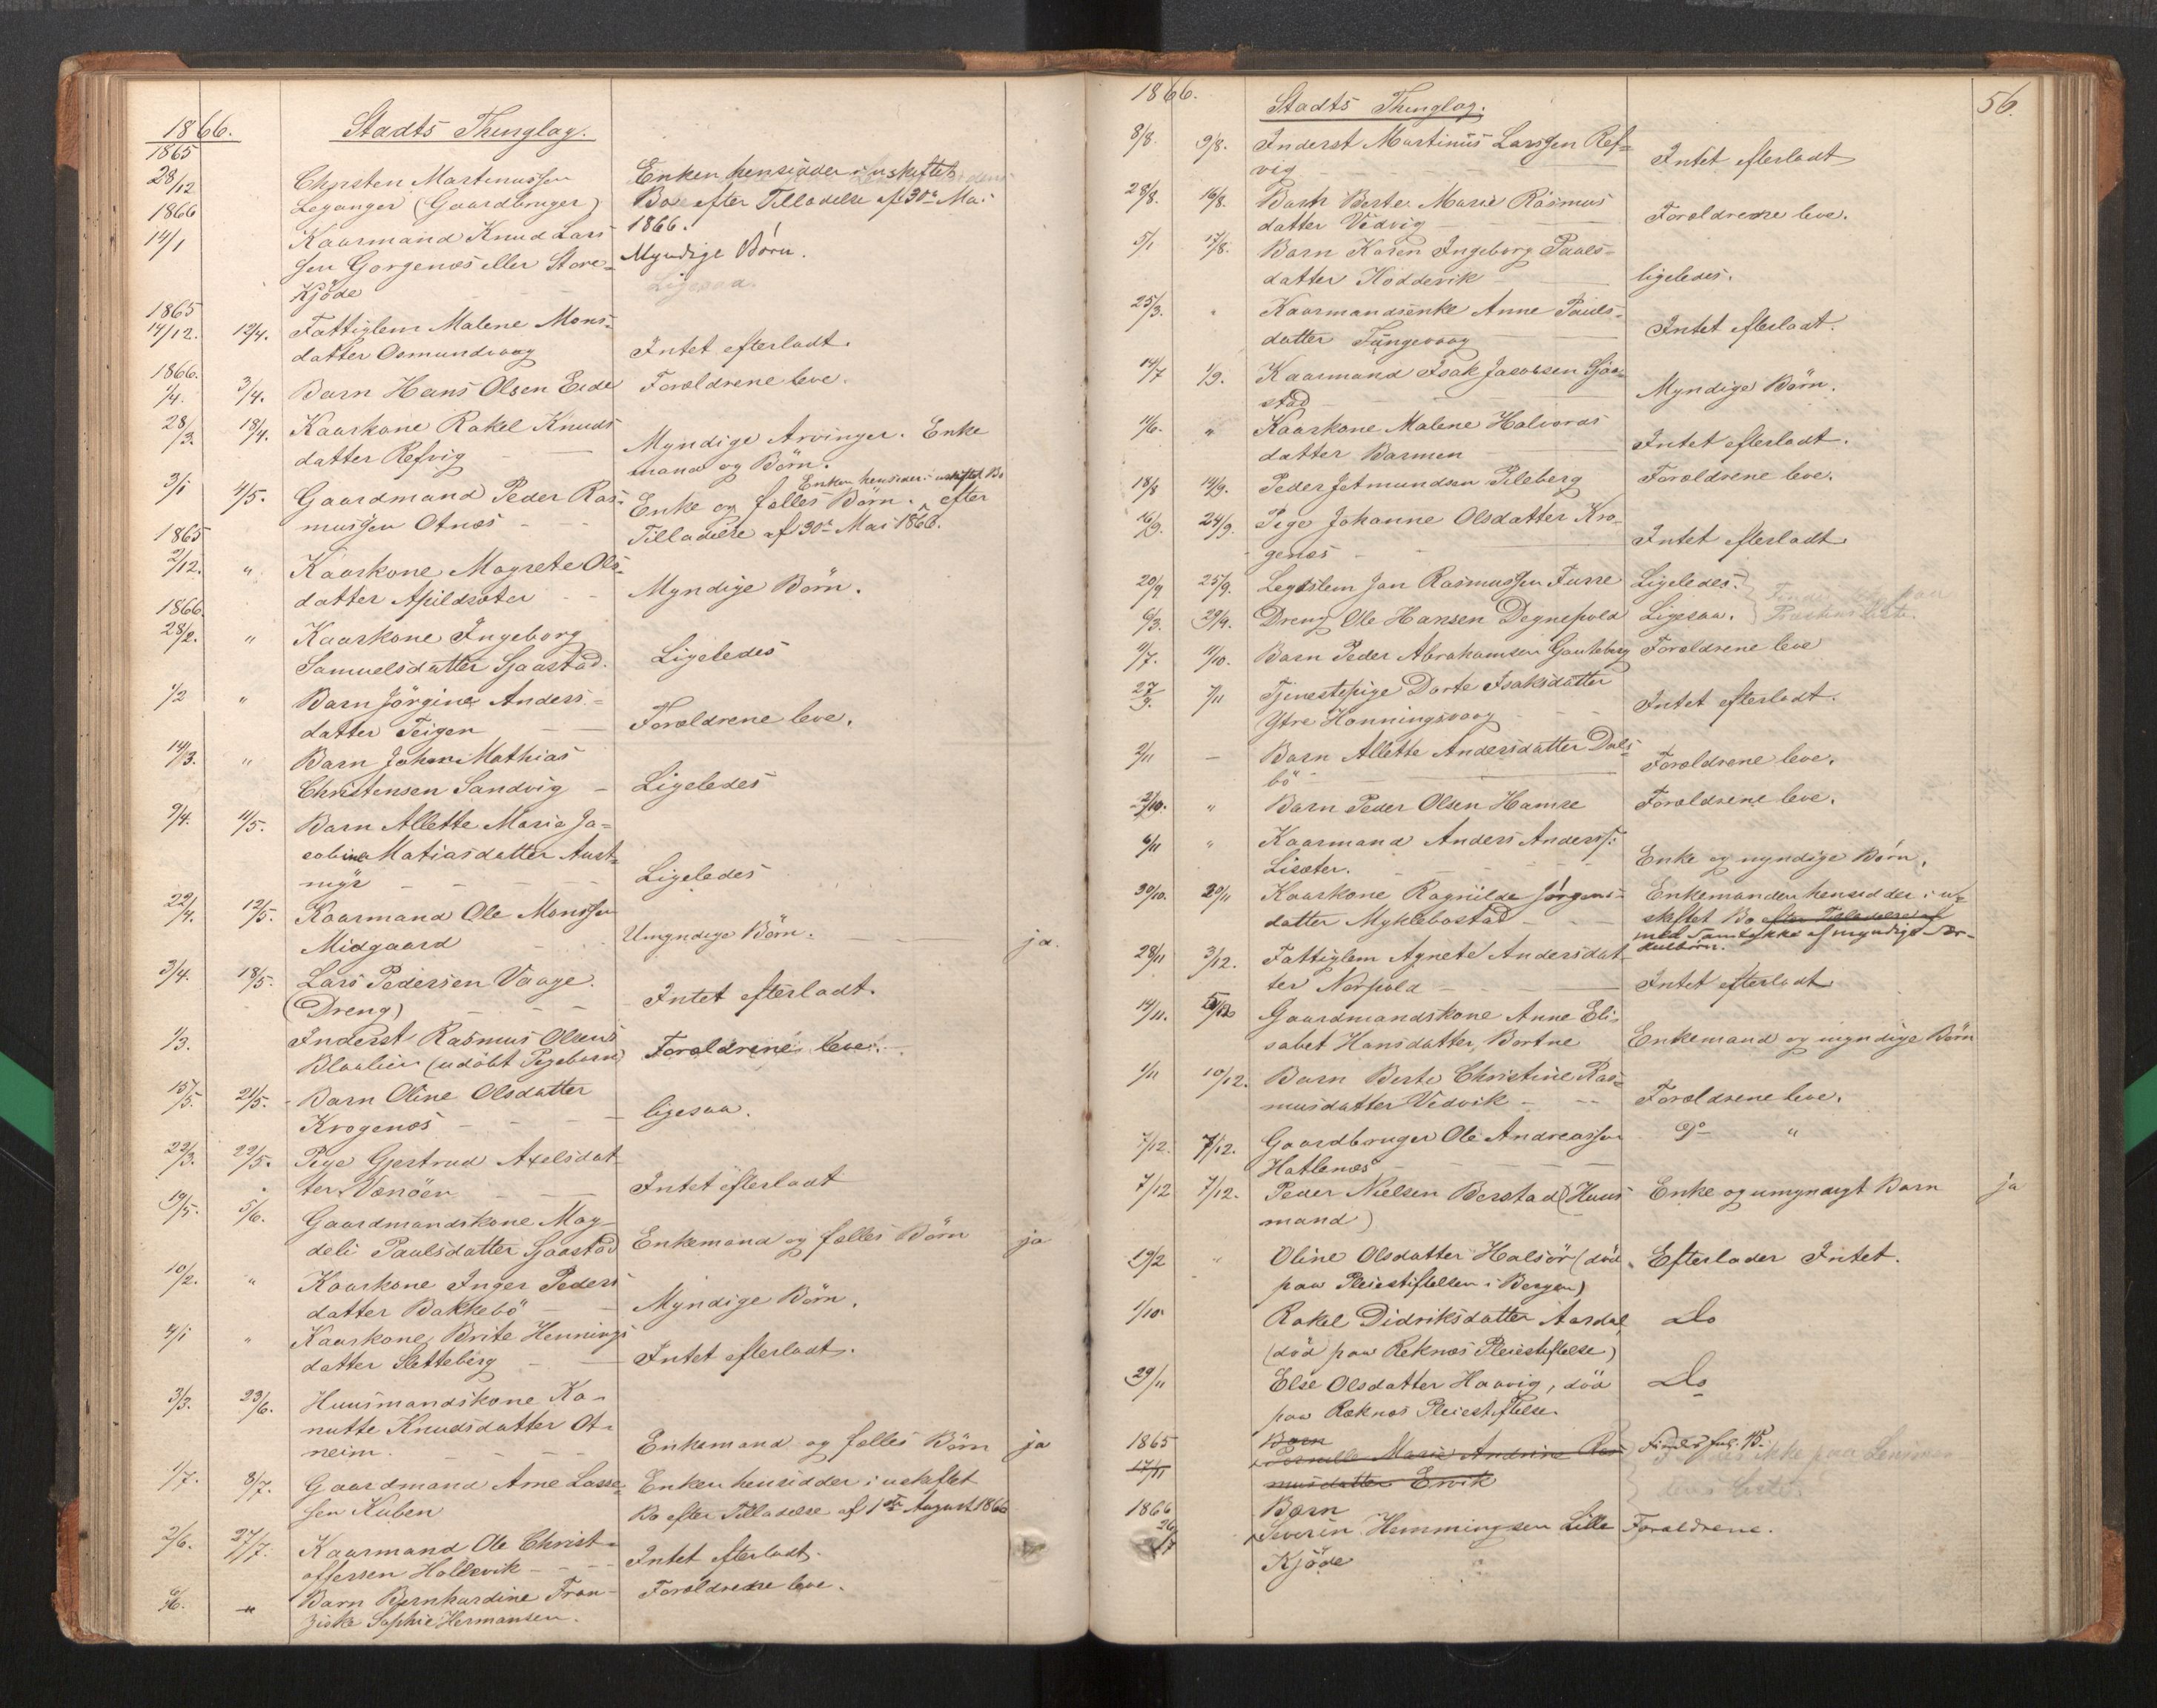 1866. Stadts Thinglag.
1865
28/12 Christen Martinussen Enken hensidder i uskiftet
1866 Leganger (Gaardbruger) Bo efter Tilladelse af 30te Mai
14/1 Kaarmand Knud Lars 1866.
sen Gorgenæs eller Store- Myndige Börn.
Kjöde Ligesaa.
1865
14/12. 12/4. Fattiglem Malene Mons-
datter Osmundvaag Intet efterladt.
1866.
1/4. 3/4. Barn Hans Olsen Eide Forældrene leve.
28/3. 18/4. Kaarkone Rakel Knuds
datter Refvig Myndige Arvinger. Enke
mand og Börn.
3/1 4/5. Gaardmand Peder Ras- Enke og fælles Börn. Enken hensidder i uskiftet Bo efter
mussen Otnæs Tilladelse af 30te Mai 1866.
1865
2/12. " Kaarkone Magrete Ols-
datter Apildsæter Myndige Börn.
1866.
28/2. " Kaarkone Ingeborg
Samuelsdatter Sjaastad. Ligeledes
1/2 " Barn Jörgine Anders-
datter Teigen Forældrene leve.
14/3. " Barn Johan Mathias
Christensen Sandvig Ligeledes
9/4. 11/5. Barn Allette Maria Ja-
cobine Matiasdatter Aust-
myr Ligeledes
22/4. 12/5. Kaarmand Ole Monssen
Midgaard Umyndige Börn. ja.
3/4. 18/5. Lars Pedersen Vaage.
(Dreng) Intet efterladt.
1/3. Inderst Rasmus Olsens
Blaalid (udöbt Pigebarn) Forældrene leve.
15/5. 21/5. Barn Oline Olsdatter
Krogenæs ligesaa.
22/3. 29/5. Pige Gjertrud Axelsdat-
ter Vanöen Intet efterladt
19/5. 5/6. Gaardmandskone Mag-
deli Paulsdatter Sjaastad Enkemand og fælles Börn ja
10/2. " Kaarkone Inger Peders
datter Bakkebö Myndige Börn.
4/1 " Kaarkone Brite Hennings
datter Sletteberg Intet efterladt.
3/3. 23/6. Huusmandskone Ka-
nutte Knudsdatter Ot-
neim. Enkemand og fælles Börn ja
1/7. 8/7. Gaardmand Arne Lasse- Enken hensidder i uskiftet
sen Kuben Bo efter Tilladelse af 1ste August 1866
2/6. 27/7. Kaarmand Ole Christ-
offersen Hollevik Intet efterladt.
" Barn Bernhardine Fran- Forældrene leve.
ziska Sophie Hermansen.
1866. Stadts Thinglag. 56.
8/8. 9/8. Inderst Martinus Larssen Ref-
vig Intet efterladt
28/8. 16/8. Barn Berte Marie Rasmus
datter Vedvig Forældrene leve.
5/1 17/8. Barn Karen Ingeborg Pauls-
datter Hoddevik ligeledes.
25/3. " Kaarmandsenke Anne Pauls-
datter Tungevaag Intet efterladt.
14/7 1/9. Kaarmand Isak Jacobsen Sjaa-
stad Myndige Börn.
14/6. " Kaarkone Malene Halvards
datter Barmen Intet efterladt.
18/8 14/9. Peder Jetmundsen Pileberg Forældrene leve.
16/9. 24/9. Pige Johanne Olsdatter Kro-
genæs Intet efterladt
20/9 25/9. Legdslem Jan Rasmussen Furre Ligeledes.
6/3. 29/9. Dreng Ole Hansen Degnepold Ligesaa.
9/7. 11/10. Barn Peder Abrahamsen Gauteberg Forældrene leve
27/9. 7/11 Tjenestepige Dorte Isaksdatter
Ytre Honningsvaag Intet efterladt.
2/11 - Barn Allette Andersdatter Dals-
bö Forældrene leve.
2/10. " Barn Peder Olsen Hamre Forældrene leve.
6/11 " Kaarmand Anders Anderss:
Lisæter. Enke og myndige Börn.
30/10. 20/11 Kaarkone Ragnilde Jörgens- Enkemanden hensidder i u-
datter Myklebostad skiftet Bo efter Tilladelse af
med Samtykke af myndige Sær-
kulbörn.
28/11 3/12. Fattiglem Agnete Andersdat-
ter Norpold Intet efterladt
14/11. Gaardmandskone Anne Eli-
sabet Hansdatter, Bortne Enkemand og myndige Börn
1/11 10/12. Barn Berte Christine Ras-
musdatter Vedvik Forældrene leve.
7/12. 7/12. Gaardbruger Ole Andreassen Do "
Hatlenæs
7/12 7/12. Peder Nielsen Berstad (Huus Enke og umyndigt Barn ja
mand)
19/2 " Oline Olsdatter Halsör (död Efterlader Intet.
paa Pleiestiftelsen i Bergen)
1/10 Rakel Didriksdatter Aardal Do
(död paa Reknæs Pleiestiftelse)
29/11 Else Olsdatter Haavig, död Do
paa Reknæs Pleiestiftelse.
1865 Barn
17/11 Pernelle Marie Andrine Ras
musdatter Ervik
1866 Barn
26/7 Severin Hemmingsen Lille Forældrene.
Kjöde